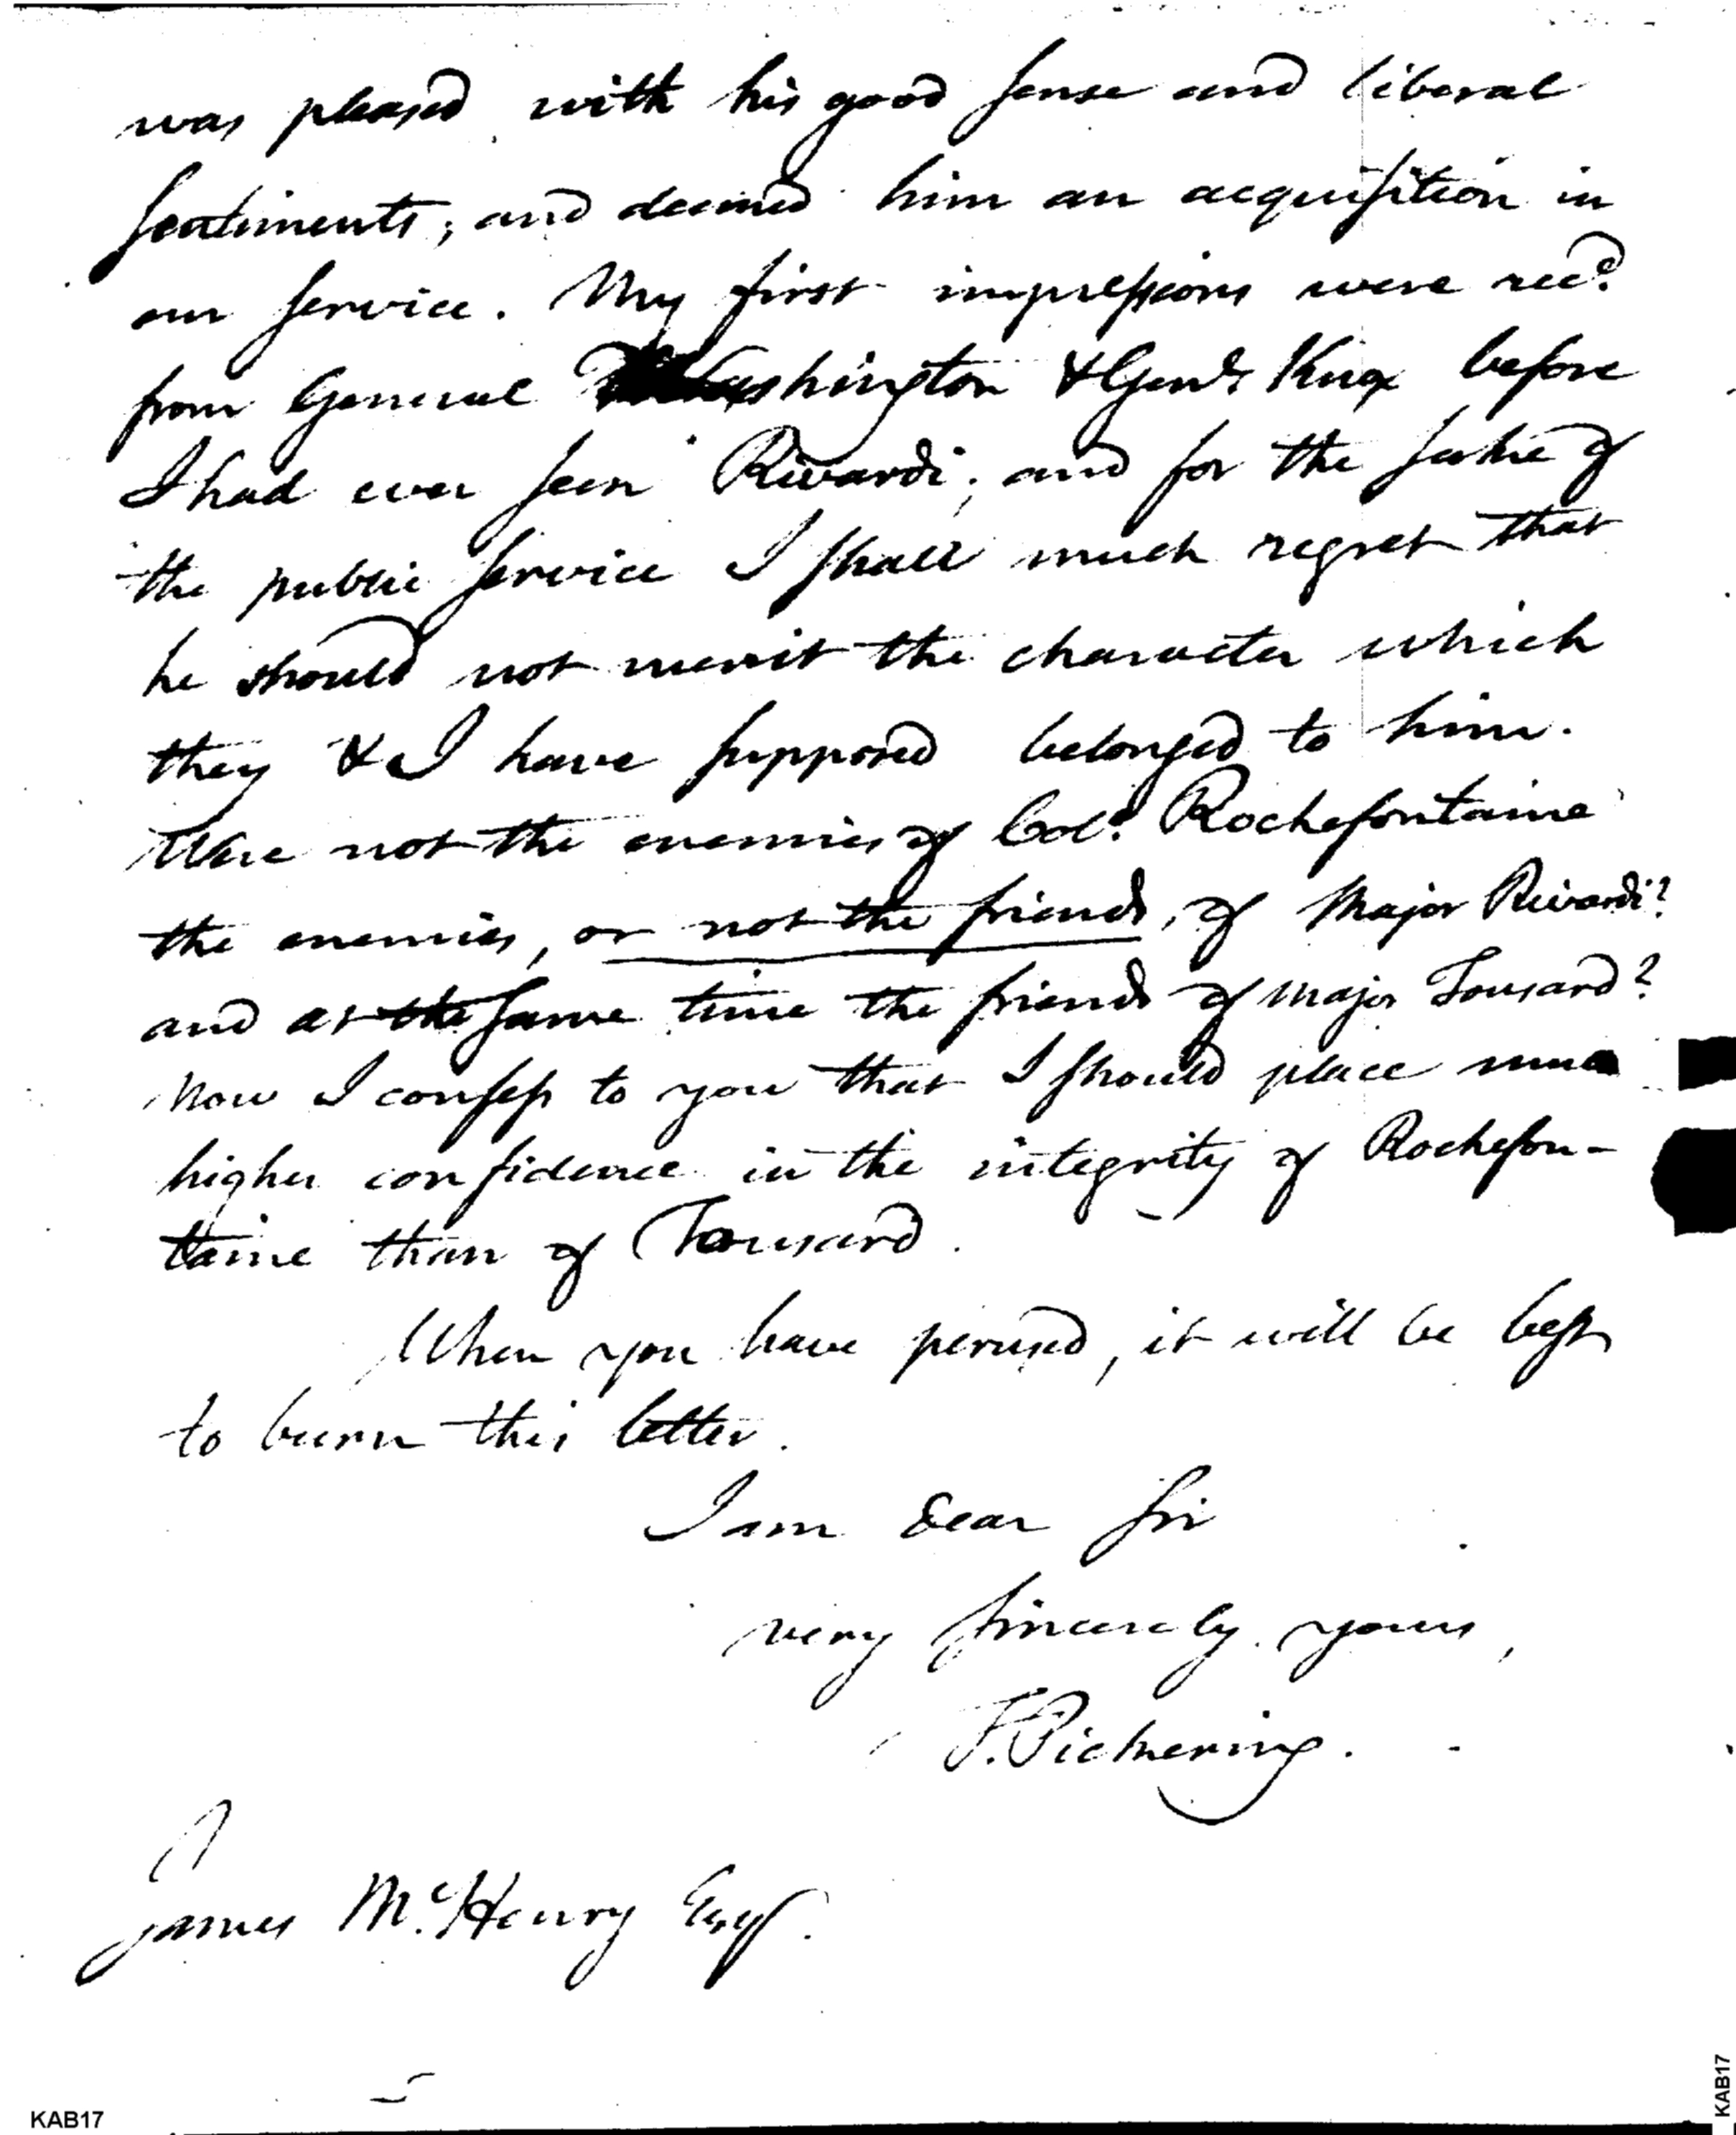 was pleased with his good sense and liberal
sentiments; and deemed him an acquisition in
our service. My first impressions were recd.
from General Washington & Genl. Knox before
I had ever seen Rivardi; and for the sake of
the public service I shall much regret that
he should not merit the character which
they & I have supposed belonged to him.
Were not the enemies of Colo. Rochefontaine
the enemies, or not the friends, of Major Rivardi?
and at the same time the friends of Major Tousard?
Now I confess to you that I should place much
higher confidence in the integrity of Rochefon-
taine than of Tousard.
When you have perused, it will be best
to burn this letter.
I am dear sir
very sincerely yours,
T. Pickering.
James McHenry Esqr.
KAB17
KAB17